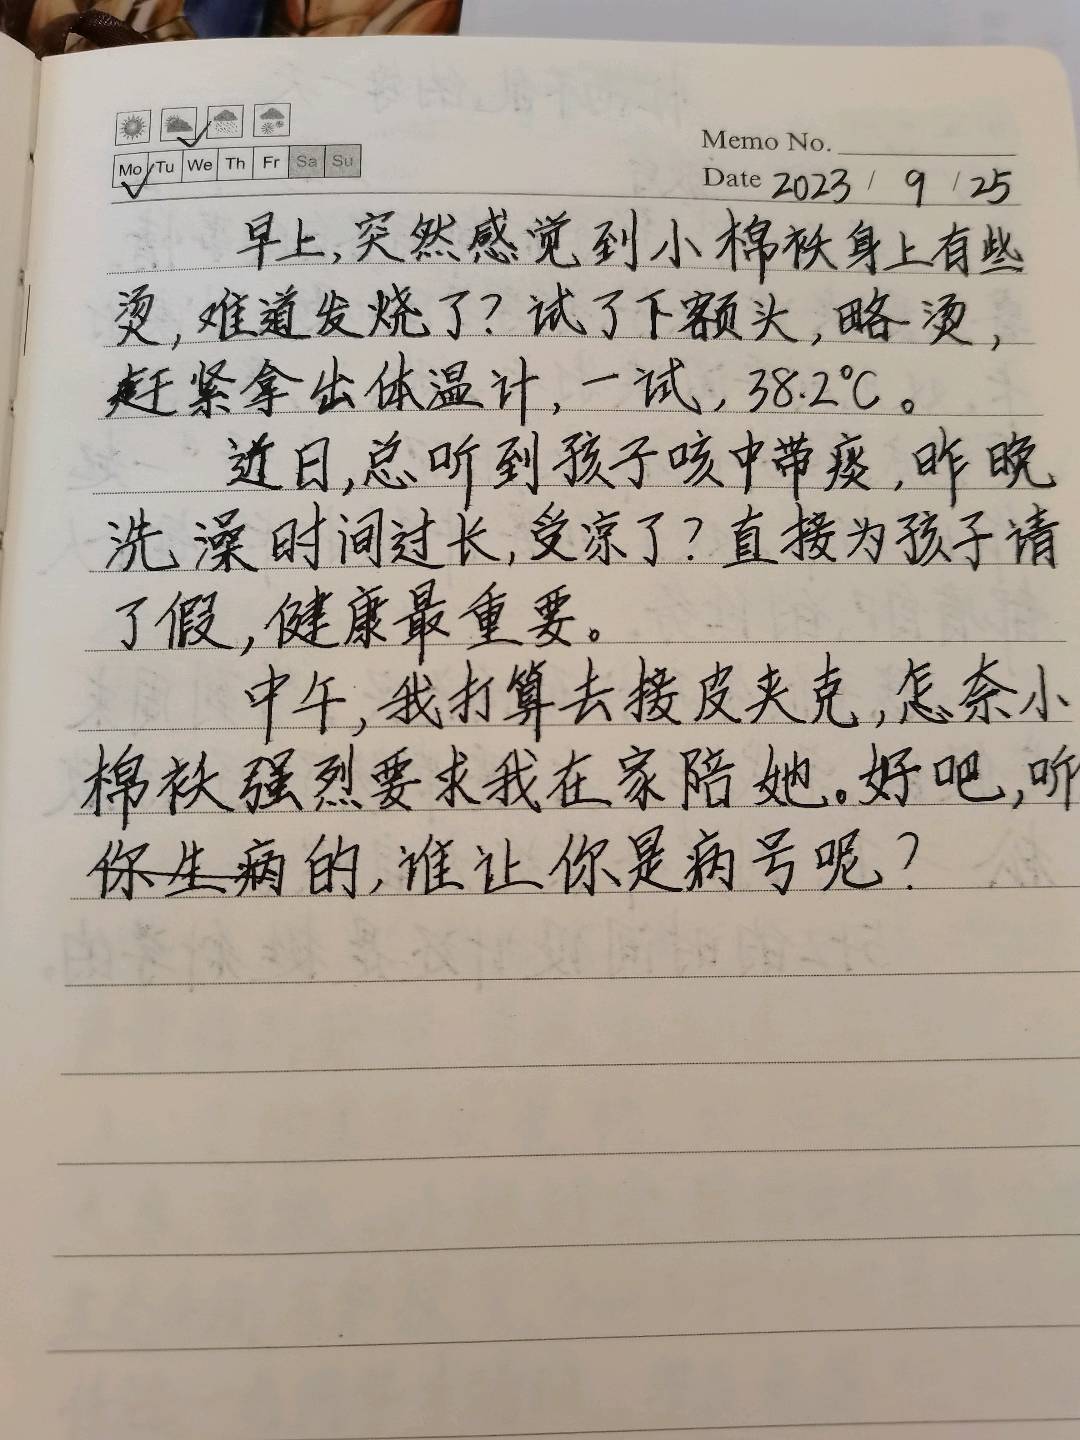 Memo No.
Mo Tu We Th Fr Sa Su
Date 2023 / 9 / 25
早上,突然感觉到小棉袄身上有些
烫,难道发烧了?试了下额头,略烫,
赶紧拿出体温计,一试,38.2℃。
近日,总听到孩子咳中带痰,昨晚
洗澡时间过长,受凉了?直接为孩子请
了假,健康最重要。
中午,我打算去接皮夹克,怎奈小
棉袄强烈要求我在家陪她。好吧,听
你生病的,谁让你是病号呢?